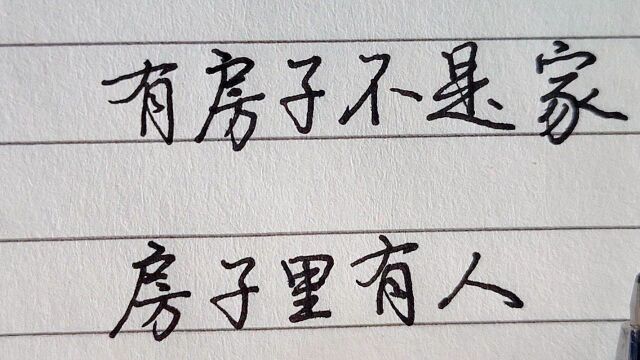 有房子不是家
房子里有人